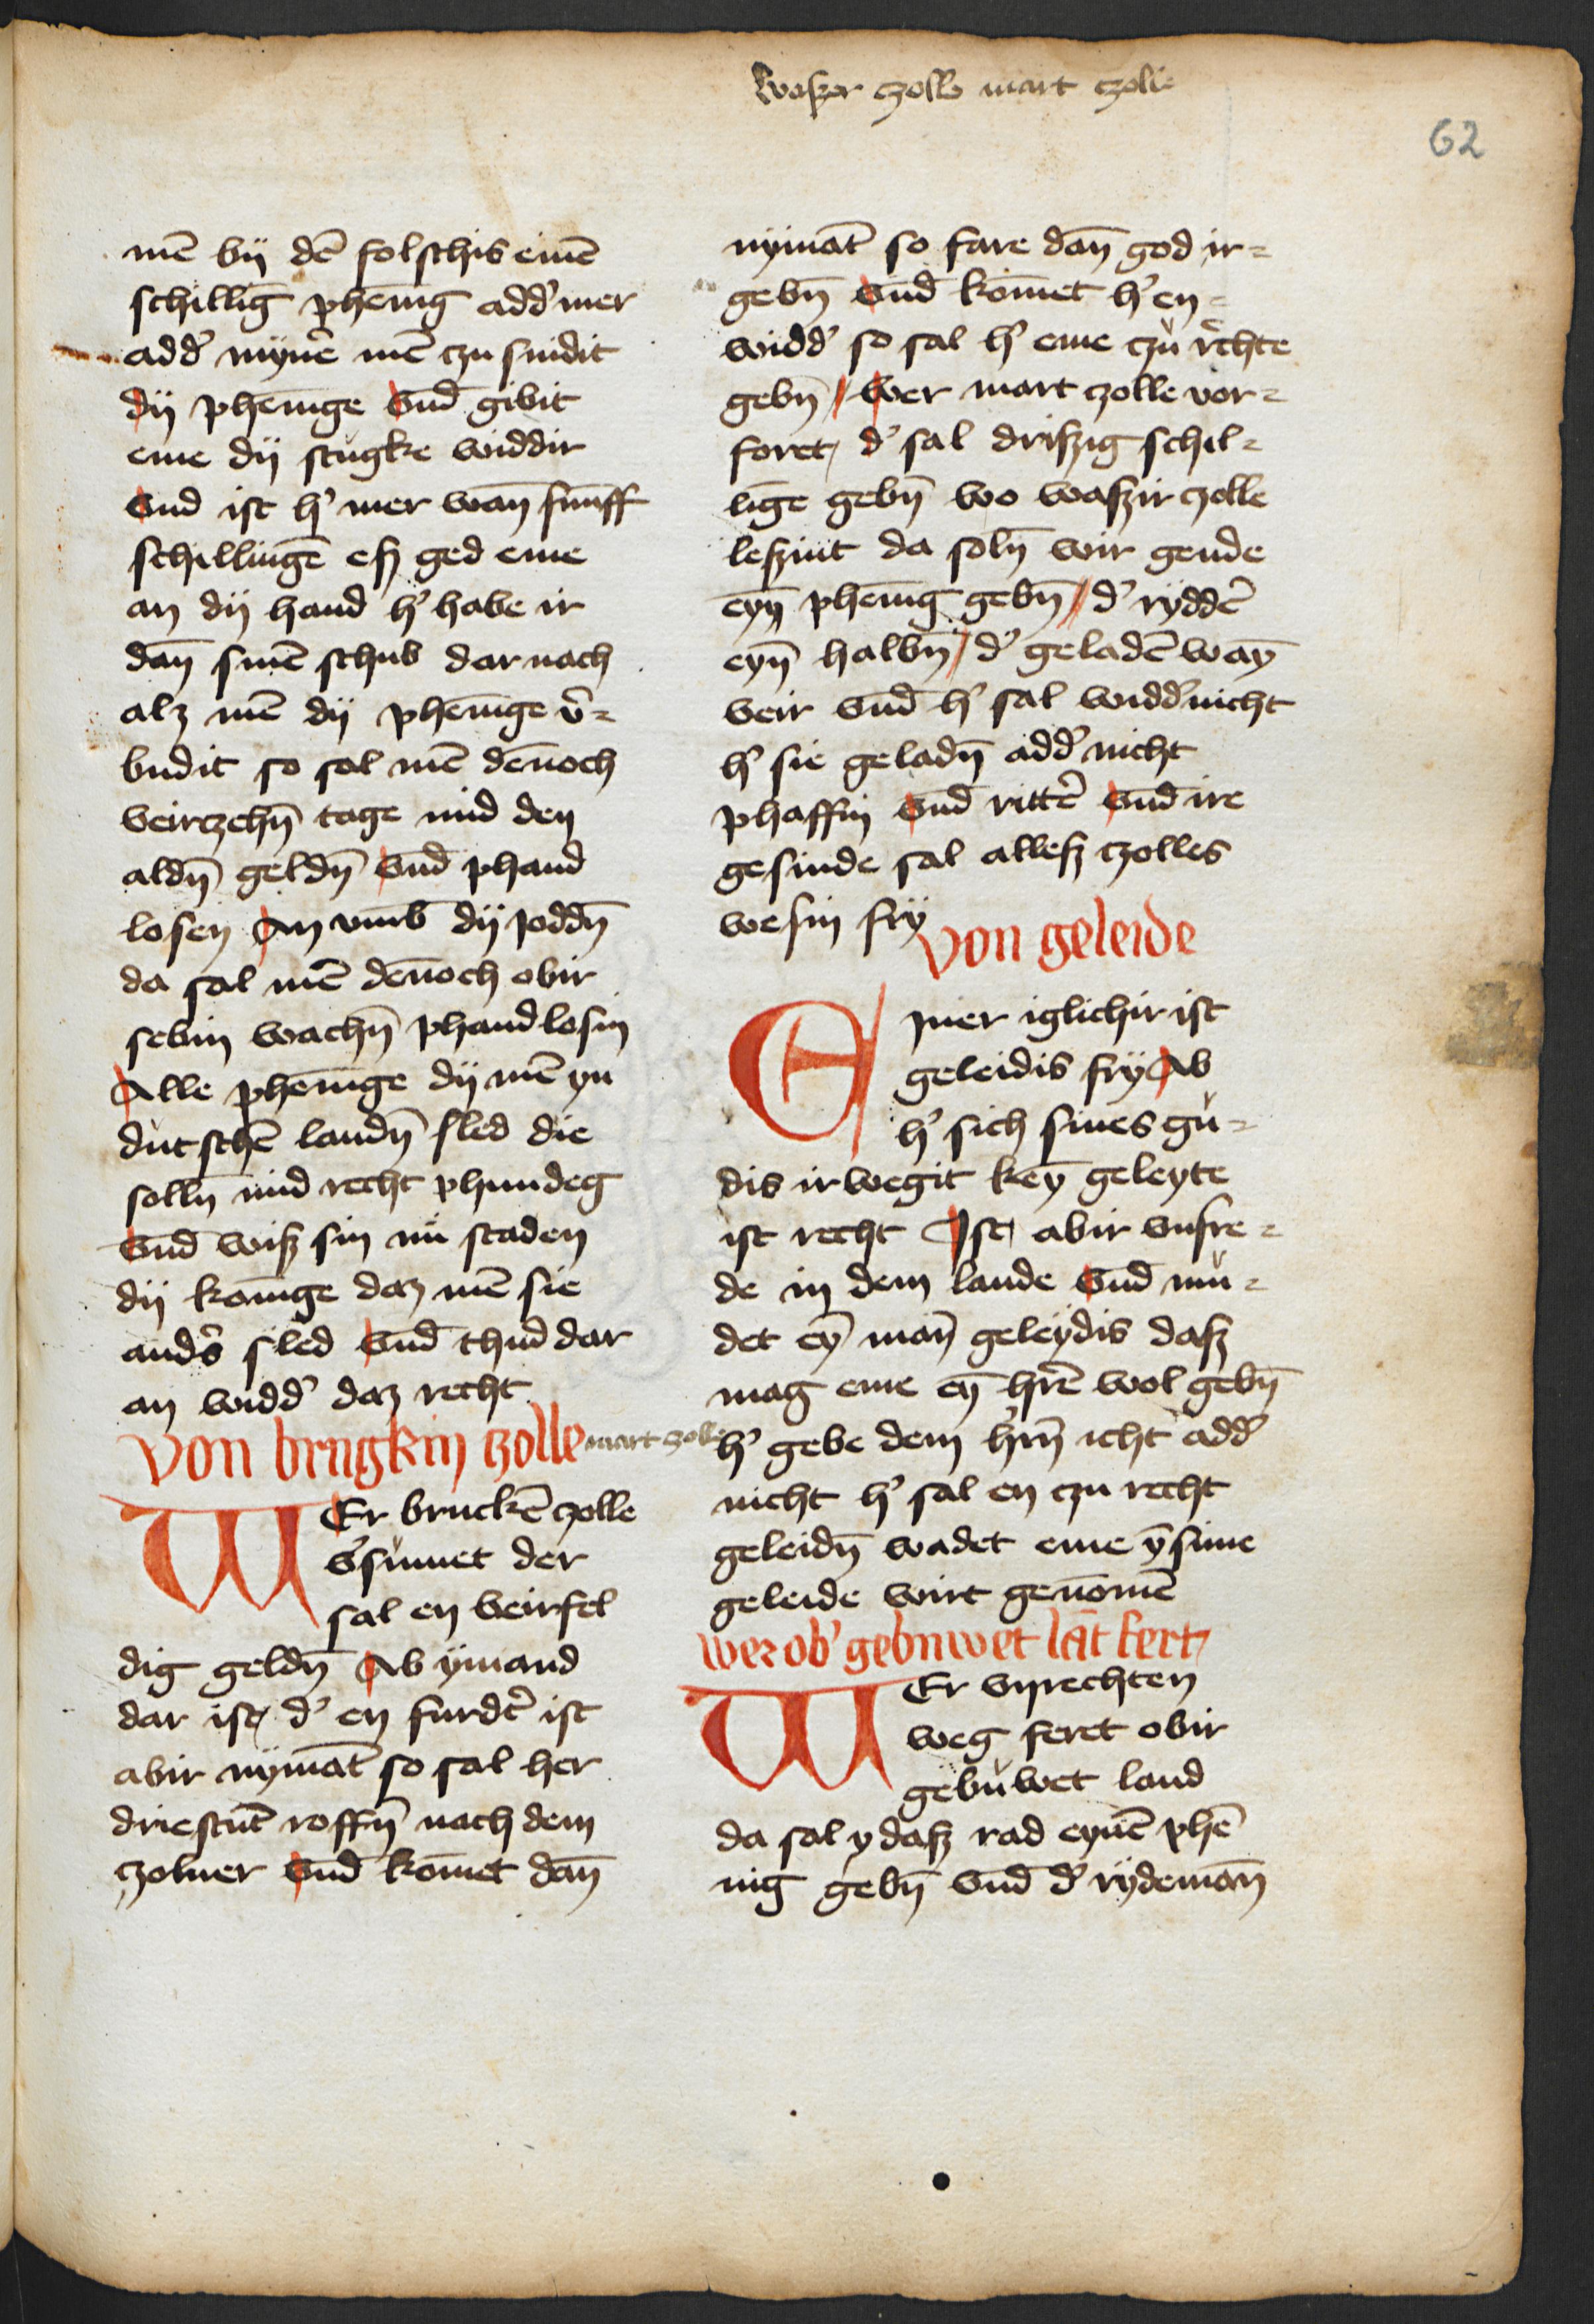 waszer czolle mart czolle
62
mē bij dē folschis einē
schillīg phēnīg add' mer
add' mynē mē czu snidit
dij phēnīge vnd gibit
eme dij stugke widdir
vnd ist h' mer wan funff
schillingē esz ged eme
an dij hand h' habe ir
dan sinē schub dar nach
alz mē dij phēnīge v̄=
budit so sal mē dēnoch
veirczehn̄ tage mid den
aldn̄ geldn̄ vnd phand
losen An vmb dij joddn̄
da sal mē dēnoch obir
sebin wachn̄ phand losin
Alle phēnīge dij mē yn
dutschē landn̄ sled die
solln̄ mid recht phundeg
vnd wisz sin nu staden
dij konīge daz mē sie
anders sled vnd thud dar
an widd' daz recht
Von brugkin zolle mart zolle
WEr bruckē czolle
v'sumet der
sal en veirfel
dig geldn̄ Ab ymand
dar ist d' en furdt' ist
abir nymāt so sal her
driestūt roffn̄ nach dem
czolner vnd komet dan̄
nymāt so fare dan̄ god ir=
gebn̄ vnd komet h' en=
widd' so sal h' eme czu rechte
gebn̄ / wer mart czolle vor=
foret / d' sal driszig schil=
līge gebn̄ wo waszir czolle
leszint da soln̄ wir gende
eyn̄ phēnīg gebn̄ // d' ryddē
eyn̄ halbn̄ / d' geladē wayn̄
veir vnd h' sal widd' nicht
h' sie geladn̄ add' nicht
phaffin vnd rittē vnd ire
gesinde sal allesz czolles
wesin fry
Von geleide
Einer iglichir ist
geleidis fry Ab
h' sich sines gu=
dis irwegit keyn̄ geleyte
ist recht Ist abir vnfre=
de in dem lande vnd mu=
det eyn̄ man̄ geleydis dasz
mag eme eyn̄ hrē wol gebn̄
h' gebe dem hrn̄ icht add'
nicht h' sal en czu recht
geleidn̄ wadet eme yn̄ sime
geleide wirt genomē
wer ob' gebuwet lāt fert
WEr vnrechten
weg feret obir
gebuwet land
da sal y dasz rad eynē phē
nig gebn̄ vnd d' rydeman̄